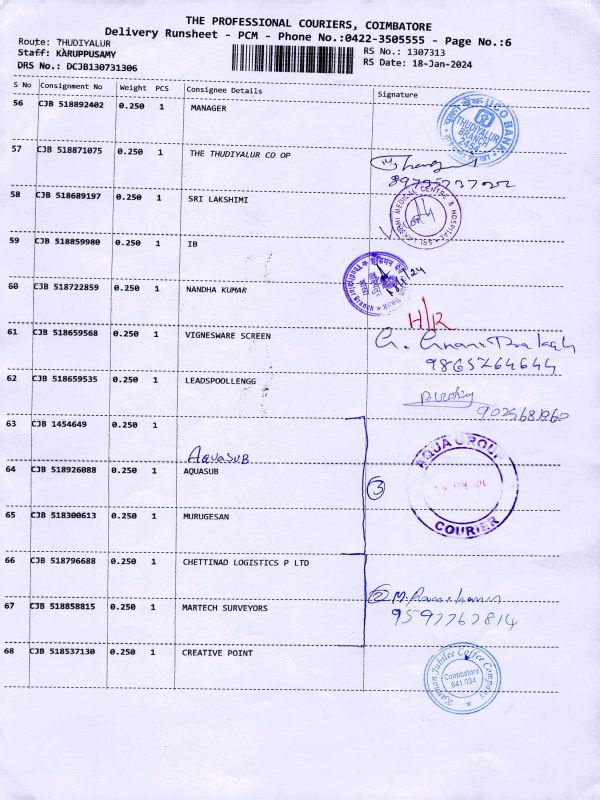 THE PROFESSIONAL COURIERS, COIMBATORE
Delivery Runsheet - PCM - Phone No.:0422-3505555 - Page No.:6
Route: THUDIYALUR
Staff: KARUPPUSAMY
DRS No.: DCJB130731306
RS No.: 1307313
RS Date: 18-Jan-2024
S No Consignment No Weight PCS Consignee Details Signature
56 CJB 518892402 0.250 1 MANAGER
UCO BANK
THUDIYALUR
BRANCH
57 CJB 518871075 0.250 1 THE THUDIYALUR CO OP
58 CJB 518689197 0.250 1 SRI LAKSHIMI
SRI LAKSHMI MEDICAL CENTRE & HOSPITAL
59 CJB 518859980 0.250 1 IB
60 CJB 518722859 0.250 1 NANDHA KUMAR
H/R
61 CJB 518659568 0.250 1 VIGNESWARE SCREEN
9865764644
62 CJB 518659535 0.250 1 LEADSPOOLLENGG
63 CJB 1454649 0.250 1
AquaSUB
64 CJB 518926088 0.250 1 AQUASUB
3
AQUA GROUP
COURIER
65 CJB 518300613 0.250 1 MURUGESAN
66 CJB 518796688 0.250 1 CHETTINAD LOGISTICS P LTD
67 CJB 518858815 0.250 1 MARTECH SURVEYORS
2
9597767814
68 CJB 518537130 0.250 1 CREATIVE POINT
Jubilee Coffee Company
Coimbatore
641 034